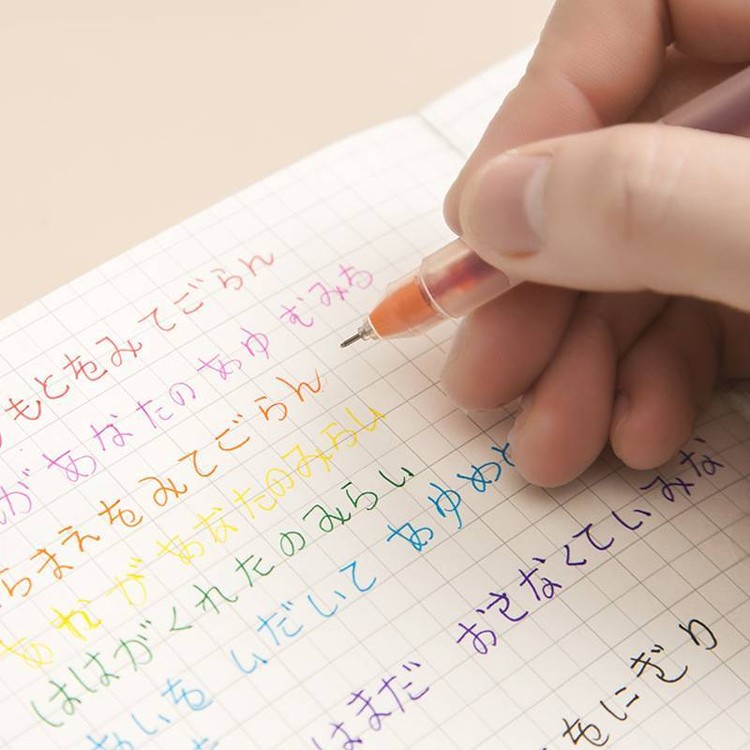 もとをみてごらん
が あなたの あゆ むみち
らまえをみてごらん
あれが あなたのみらい
ははがくれたのみらい
あいを いだいて あゆめと
はまだ おさなくていみな
をにぎり